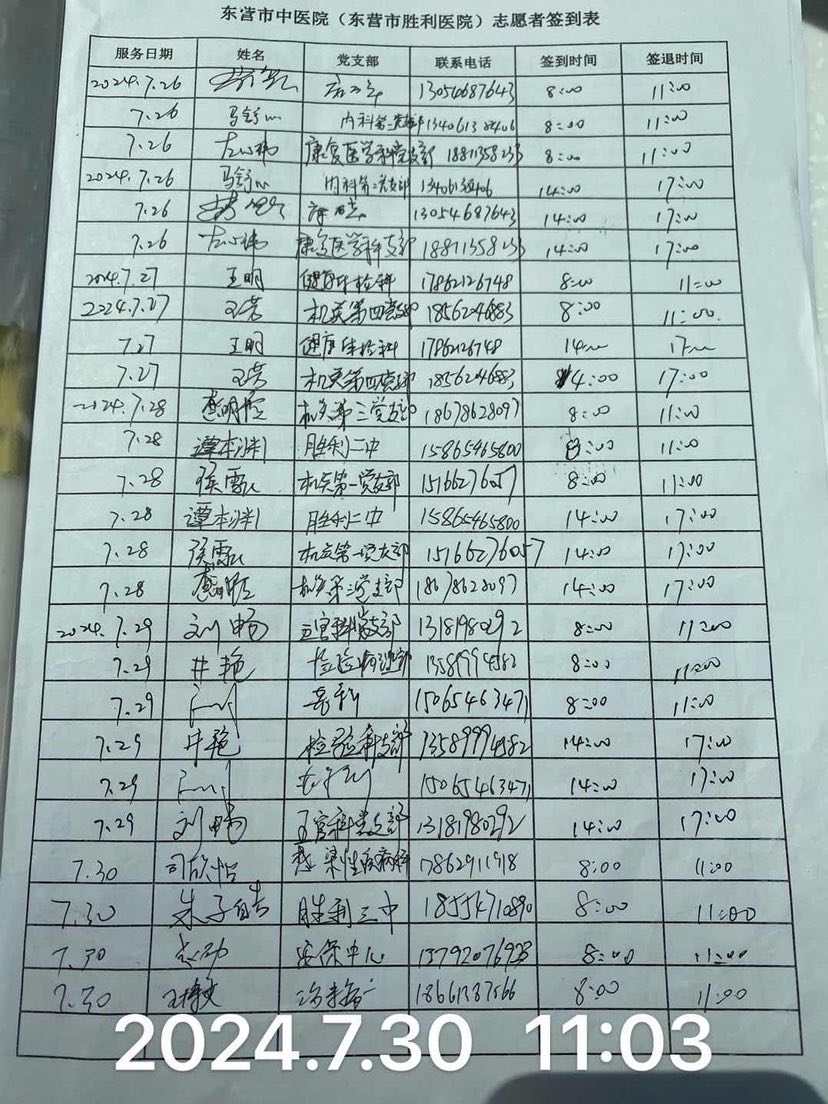 东营市中医院（东营市胜利医院）志愿者签到表
服务日期 姓名 党支部 联系电话 签到时间 签退时间
2024.7.26 13054687643 8:00 11:00
7.26 马舒心 内科第二党支部 13406138406 8:00 11:00
7.26 康复医学科党支部 18811358233 8:00 11:00
2024.7.26 马舒心 内科第二党支部 13406138406 14:00 17:00
7.26 13054687643 14:00 17:00
7.26 康复医学科支部 18811358233 14:00 17:00
2024.7.27 王明 健康体检科 17862126748 8:00 11:00
2024.7.27 机关第四党支部 18562046883 8:00 11:00
7.27 王明 健康体检科 17862126748 14:00 17:00
7.27 机关第四党支部 18562046883 14:00 17:00
2024.7.28 机关第三党支部 18678628097 8:00 11:00
7.28 谭本渊 胜利二中 15865465800 8:00 11:00
7.28 侯霞 机关第一党支部 15166276057 8:00 11:00
7.28 谭本渊 胜利二中 15865465800 14:00 17:00
7.28 侯霞 机关第一党支部 15166276057 14:00 17:00
7.28 机关第三党支部 18678628097 14:00 17:00
2024.7.29 刘畅 五官科党支部 13181980292 8:00 11:00
7.29 井艳 检验病理支部 13589994582 8:00 11:00
7.29 15065463471 8:00 11:00
7.29 井艳 检验科支部 13589994582 14:00 17:00
7.29 15065463471 14:00 17:00
7.29 刘畅 五官科党支部 13181980292 14:00 17:00
7.30 司欣怡 感染性疾病科 17862911918 8:00 11:00
7.30 朱子皓 胜利三中 18554710890 8:00 11:00
7.30 安保中心 13792076923 8:00 11:00
7.30 8:00 11:00
2024.7.30 11:03